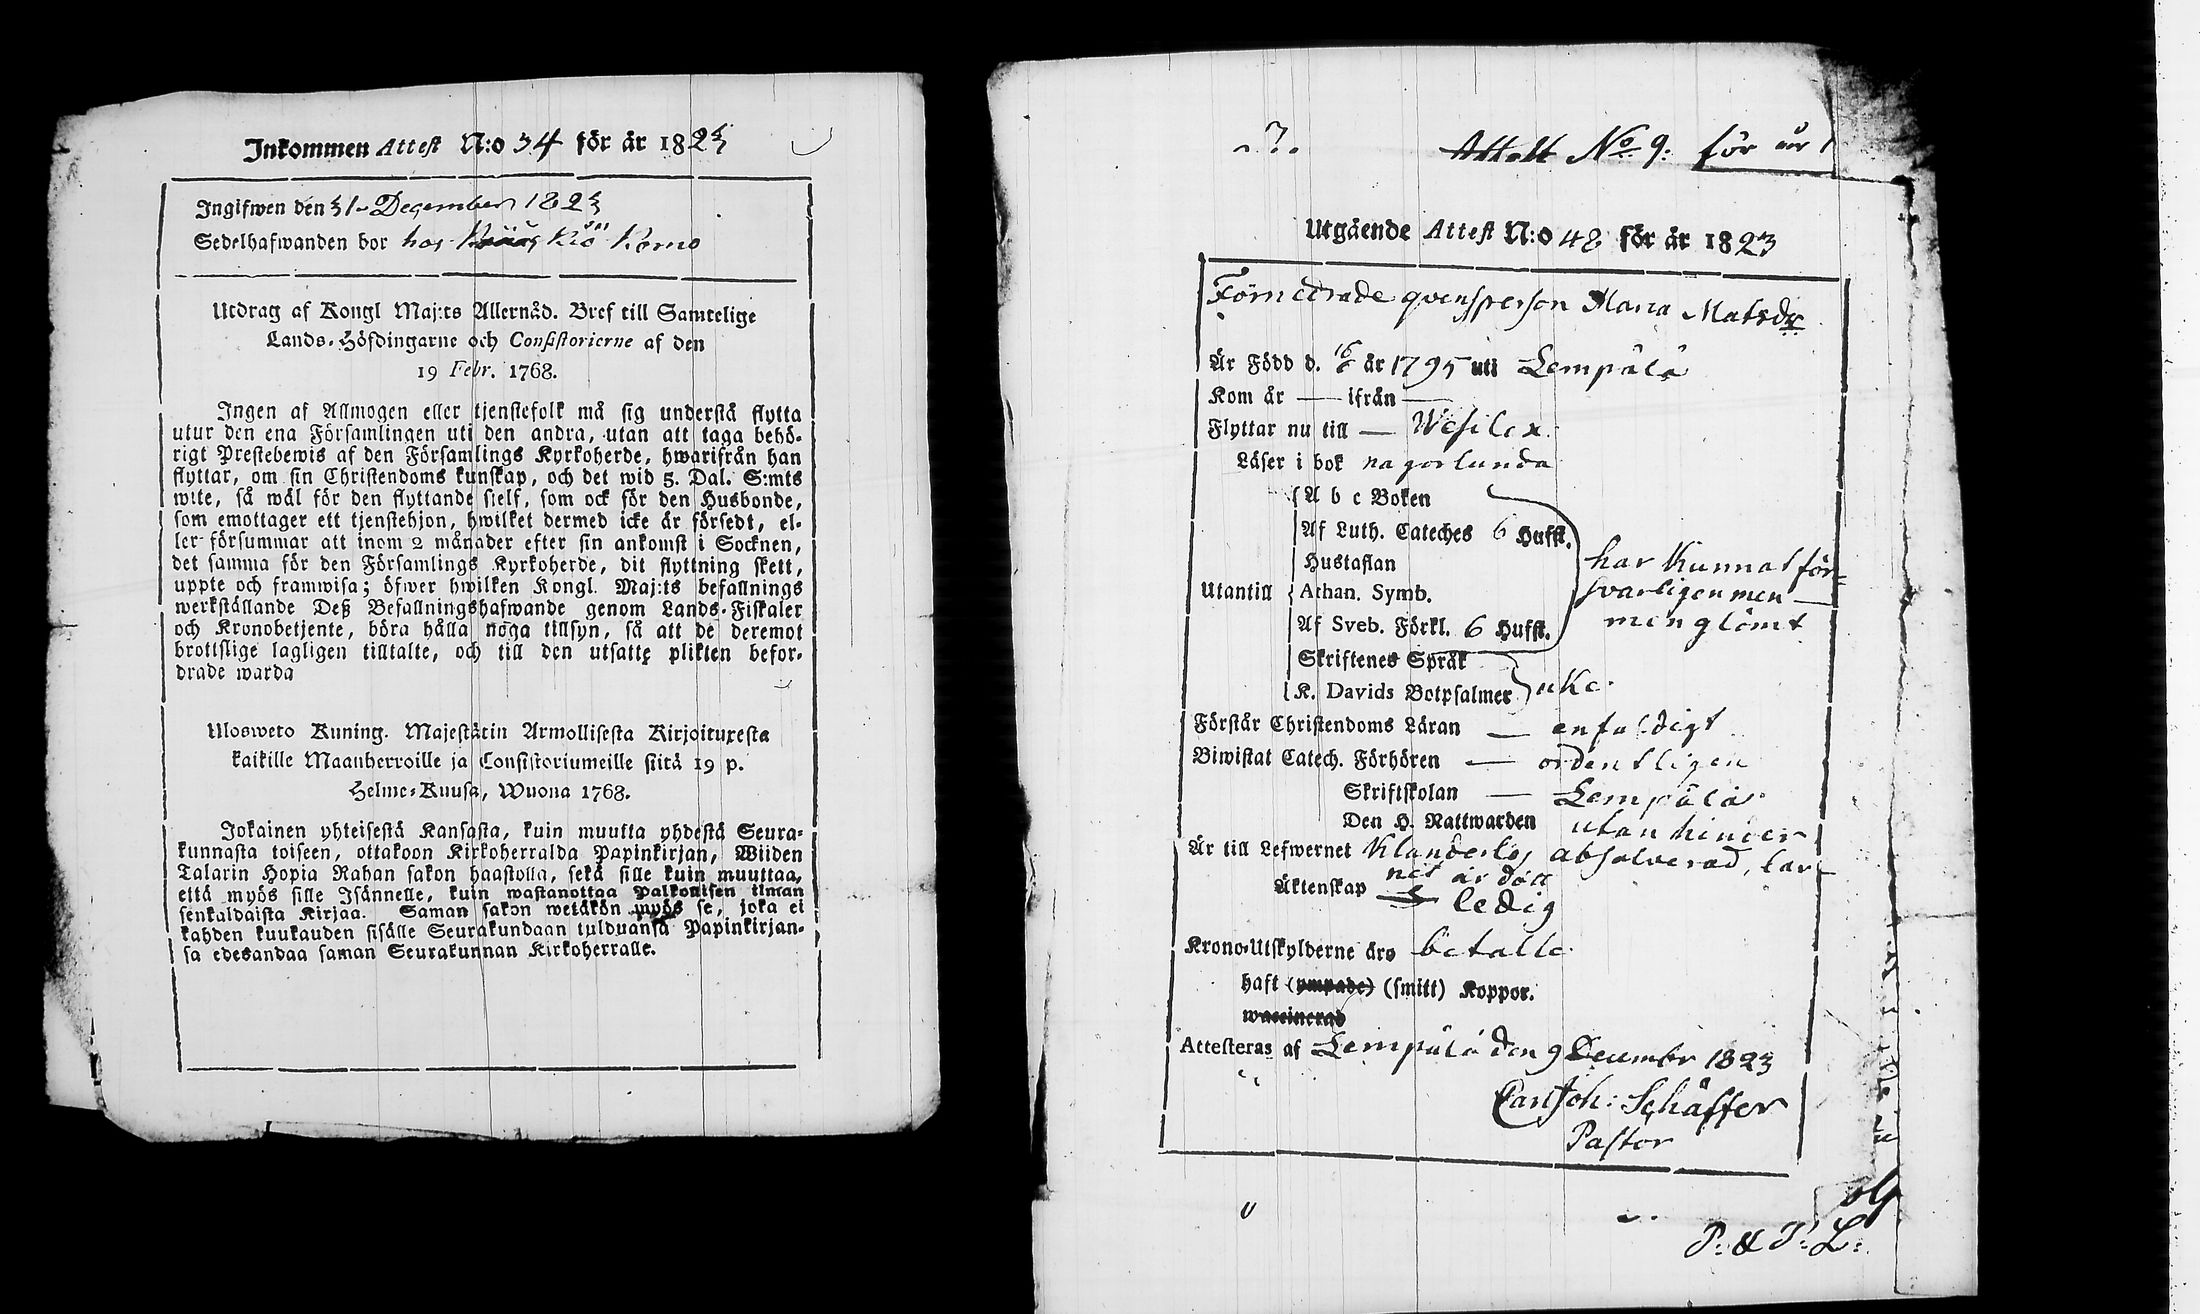 Inkommen Attest N:o 34 för år 1823
Ingifwen den 31 December 1823
Sedelhafwanden bor hos Kiö Komo
Utdrag af Kongl Maj:ts Allernåd. Bref till Samtelige
Lands-Höfdingarne och Consistorierne af den
19 Febr. 1768.
Ingen af Allmogen eller tjenstefolk må sig understå flytta
utur den ena Församlingen uti den andra, utan att taga behö-
rigt Prestebewis af den Församlings Kyrkoherde, hwarifrån han
flyttar, om sin Christendoms kunskap, och det wid 5. Dal. S:mts
wite, så wäl för den flyttande sielf, som ock för den Husbonde,
som emottager ett tjenstehjon, hwilket dermed icke är försedt, el-
ler försummar att inom 2 månader efter sin ankomst i Socknen,
det samma för den Församlings Kyrkoherde, dit flyttning skett,
uppte och framwisa; öfwer hwilken Kongl. Maj:ts befallnings
werkställande Deß Befallningshafwande genom Lands-Fiskaler
och Kronobetjente, böra hålla noga tillsyn, så att de deremot
brottslige lagligen tilltalte, och till den utsatte plikten befor-
drade warda
Ulosweto Kuning. Majestätin Armollisesta Kirjoituxesta
kaikille Maanherroille ja Consistoriumeille siitä 19 p.
Helme-Kuusa, Wuona 1768.
Jokainen yhteisestä Kansasta, kuin muutta yhdestä Seura-
kunnasta toiseen, ottakoon Kirkoherralda Papinkirjan, Wiiden
Talarin Hopia Rahan sakon haastolla, sekä sille kuin muuttaa,
että myös sille Isännelle, kuin wastanottaa Palkollisen ilman
senkaldaista Kirjaa. Saman sakon wetäkön myös se, joka ei
kahden kuukauden sisälle Seurakundaan tulduansa Papinkirjan-
sa edesandaa saman Seurakunnan Kirkoherralle.
Attest No. 9: för år 1
Utgående Attest N:o 48 för år 1823
Förnedrade qvensperson Maria Matsdr
Är Född d. 16/6 år 1795 uti Lempälä
Kom år — ifrån —
Flyttar nu till — Wesilax.
Läser i bok någorlunda
A b c Boken
Af Luth. Cateches 6 Hufst.
Hustaflan
Utantill Athan. Symb.
Af Sveb. Förkl. 6 Hufst.
har kunnat för-
svarligen men —
men glömt
Skriftenes Språk
K. Davids Botpsalmer icke.
Förstår Christendoms Läran — enfaldigt
Biwistat Catech. Förhören — ordentligen
Skriftskolan — Lempälä.
Den H. Nattwarden utan hinder
Är till Lefwernet Klanderlös absolverad, bar-
net är dött
Äktenskap — ledig
Krono-Utskylderne äro betalte.
haft (ympade) (smitt) Koppor.
waccinerad
Attesteras af Lempälä den 9 December 1823
Carl Joh: Schäffer
Pastor
P: & P: L: